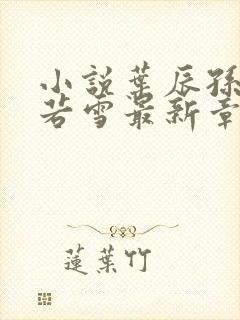 小說葉辰孫
若雪最新章
蓮葉竹